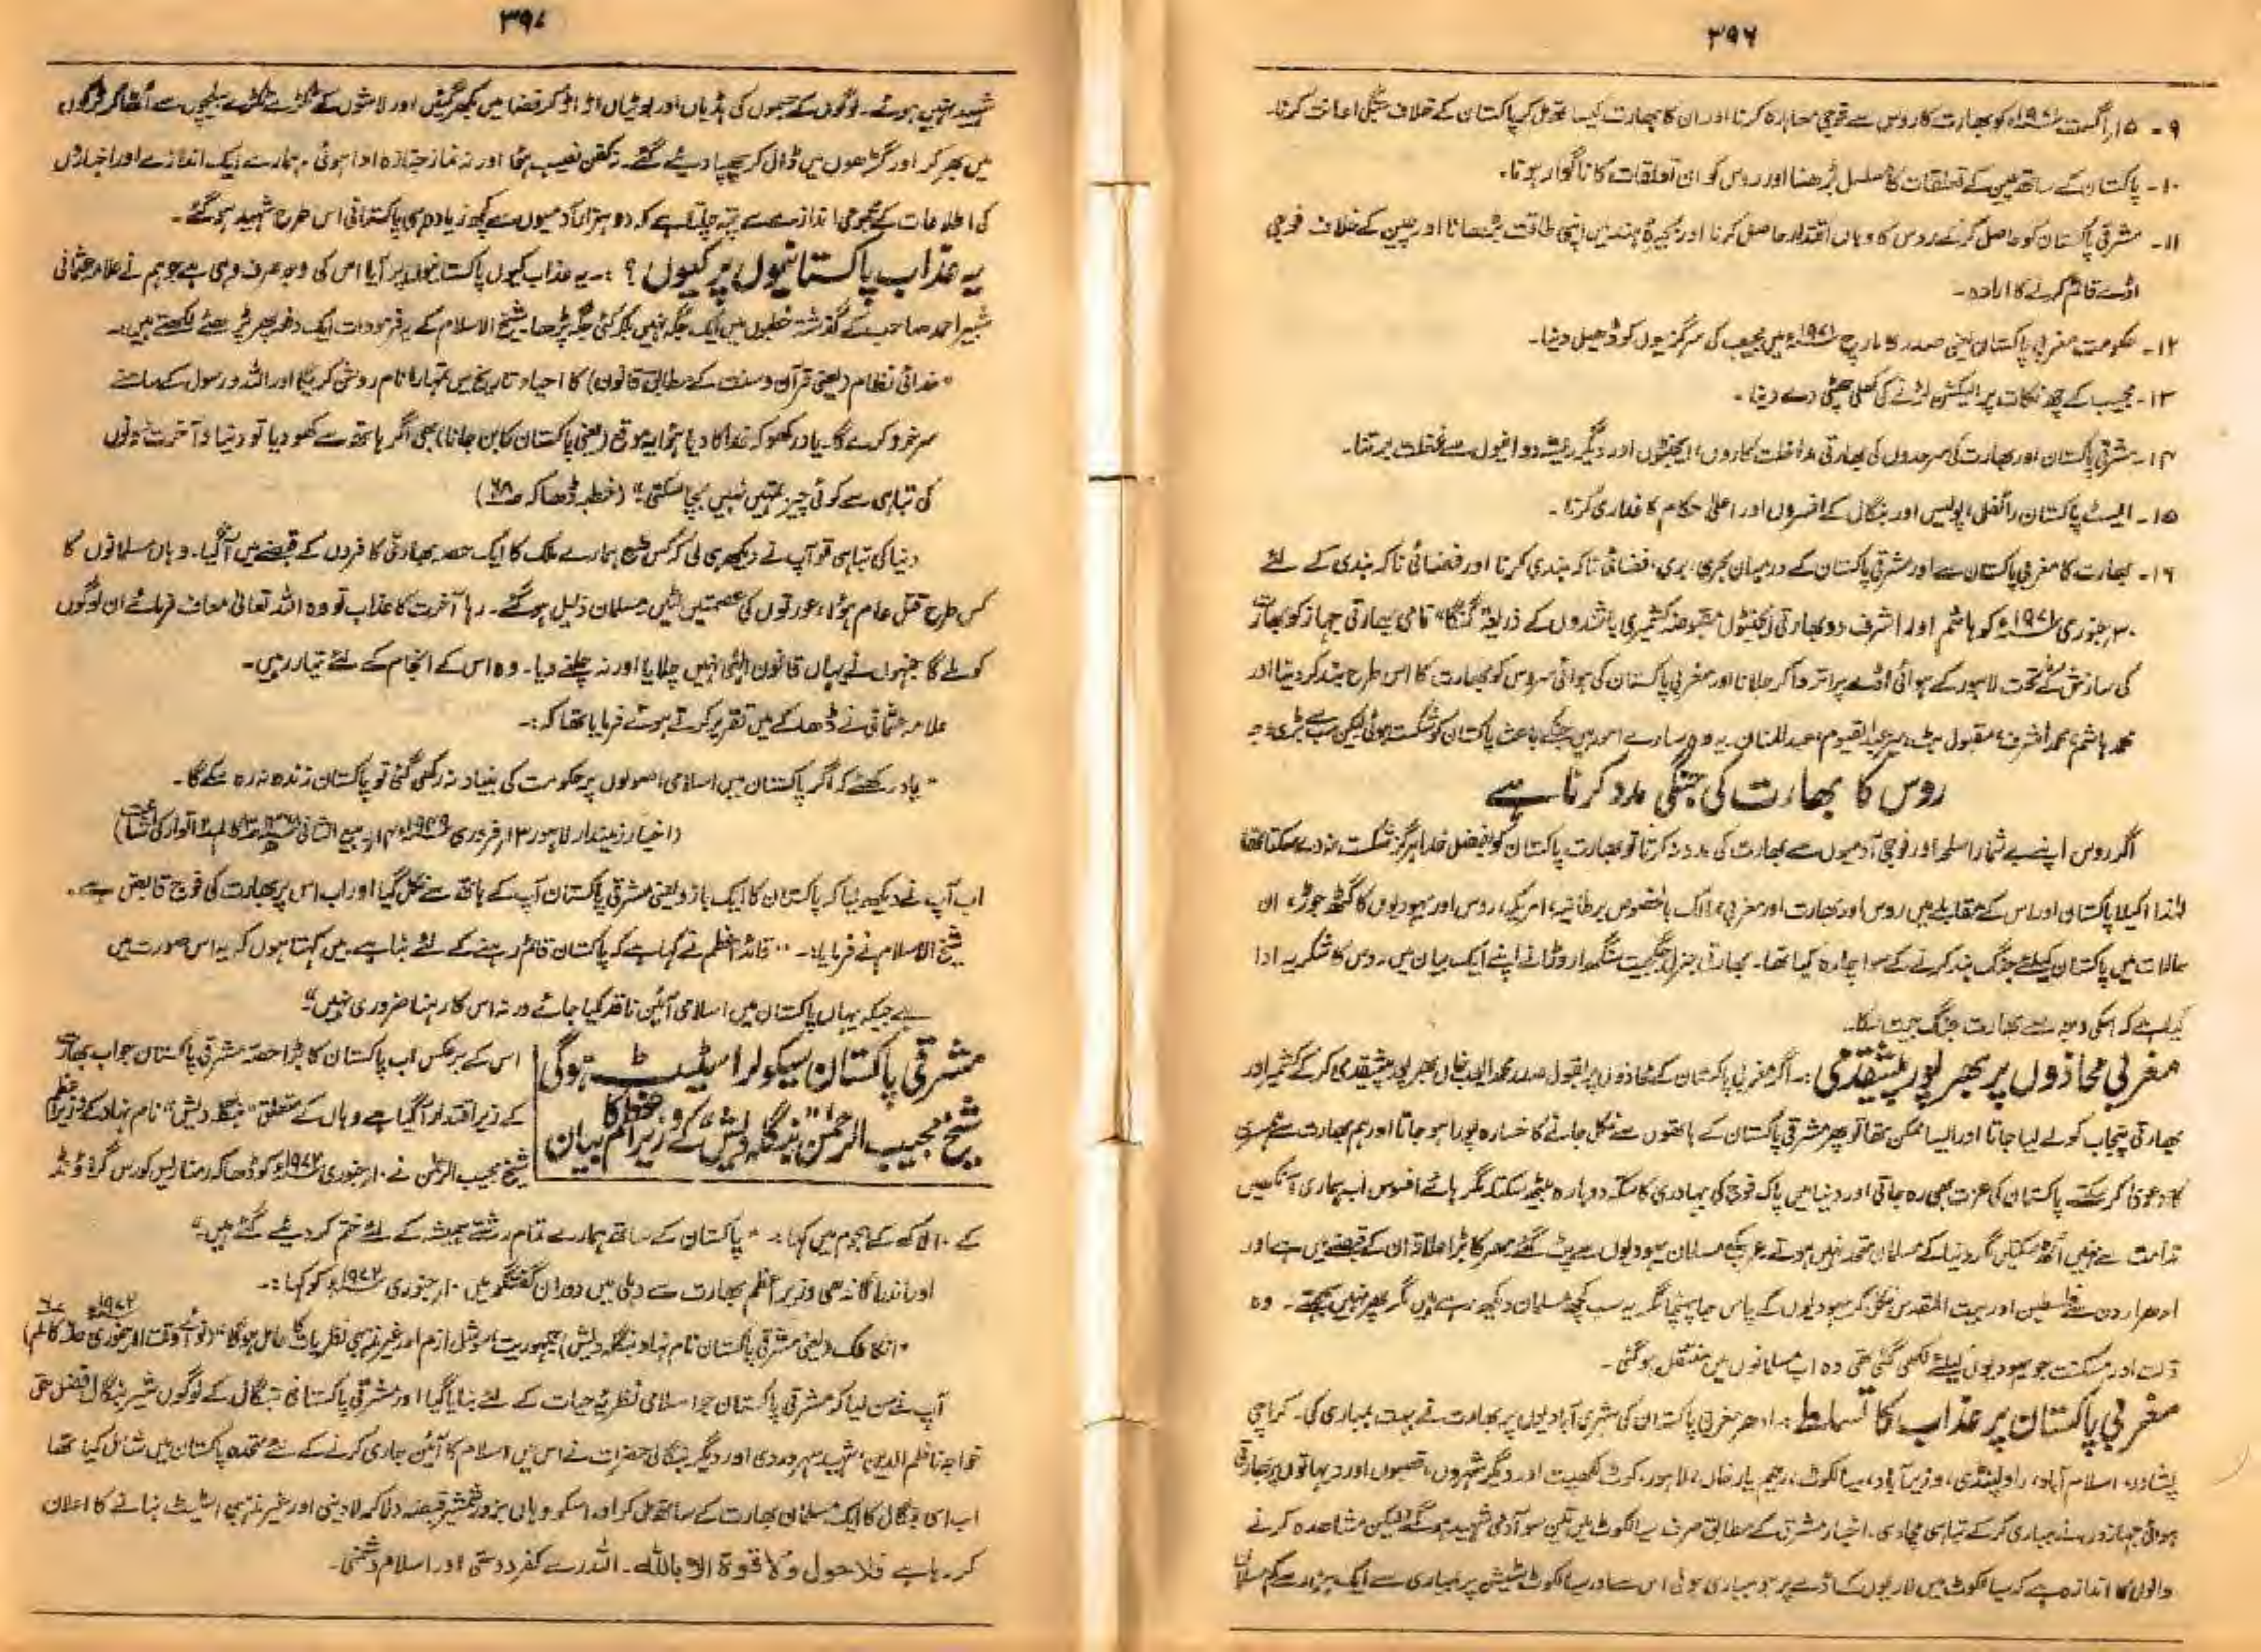 ۳۹۶
۹۔ ۱۵ اگست ۱۹۷۱ء کو بھارت کا روس سے فوجی معاہدہ کرنا اور ان کا بھارت کیساتھ مل کر پاکستان کے خلاف جنگی اعانت کرنا۔
۱۰۔ پاکستان کے ساتھ چین کے تعلقات کا مسلسل بڑھنا اور روس کو ان تعلقات کا ناگوار ہونا۔
۱۱۔ مشرقی پاکستان کو حاصل کرنے روس کا وہاں اقتدار حاصل کرنا اور بحیرۂ ہند میں اپنی طاقت بڑھانا اور چین کے خلاف فوجی
اڈے قائم کرنے کا ارادہ۔
۱۲۔ حکومت مغربی پاکستان یعنی صدر کا مارچ ۱۹۷۱ء میں مجیب کی سرگرمیوں کو ڈھیل دینا۔
۱۳۔ مجیب کے چھ نکات پر الیکشن لڑنے کی کھلی چھٹی دے دینا۔
۱۴۔ مشرقی پاکستان اور بھارت کی سرحدوں کی بھارتی مداخلت کاروں، ایجنٹوں اور دیگر ریشہ دوانیوں سے غفلت برتنا۔
۱۵۔ ایسٹ پاکستان رائفل، پولیس اور بنگال کے افسروں اور اعلیٰ حکام کا غداری کرنا۔
۱۶۔ بھارت کا مغربی پاکستان سے اور مشرقی پاکستان کے درمیان بحری، بری، فضائی ناکہ بندی کرنا اور فضائی ناکہ بندی کے لئے
۳۰ جنوری ۱۹۷۱ء کو ہاشم اور اشرف دو بھارتی ایجنٹوں مقبوضہ کشمیری باشندوں کے ذریعہ "گنگا" نامی بھارتی جہاز کو بھارت
کی سازش کے تحت لاہور کے ہوائی اڈے پر اتروا کر جلانا اور مغربی پاکستان کی ہوائی سروس کو بھارت کا اس طرح بند کر دینا اور
محمد ہاشم، محمد اشرف، مقبول بٹ، میر عبدالقیوم، عبدالمنان یہ وہ سارے امور ہیں جنکے باعث پاکستان کو شکست ہوئی لیکن سب سے بڑی وجہ
روس کا بھارت کی جنگی مدد کرنا ہے
اگر روس اپنے بے شمار اسلحہ اور فوجی آدمیوں سے بھارت کی مدد نہ کرتا تو بھارت پاکستان کو بفضل خدا ہرگز شکست نہ دے سکتا تھا
لہٰذا اکیلا پاکستان اور اس کے مقابلے میں روس اور بھارت اور مغربی ممالک بالخصوص برطانیہ، امریکہ، روس اور یہودیوں کا گٹھ جوڑ، ان
حالات میں پاکستان کیلئے جنگ بند کرنے کے سوا چارہ کیا تھا۔ بھارتی جنرل جگجیت سنگھ اروڑا نے اپنے ایک بیان میں روس کا شکریہ ادا
کیا ہے کہ اسکی وجہ سے بھارت جنگ جیت سکا۔
مغربی محاذوں پر بھرپور پیشقدمی:۔ اگر مغربی پاکستان کے محاذوں پر بقول صدر محمد ایوب خاں بھرپور پیشقدمی کر کے کشمیر اور
بھارتی پنجاب کو لے لیا جاتا اور ایسا ممکن تھا تو پھر مشرقی پاکستان کے ہاتھوں سے نکل جانے کا خسارہ پورا ہو جاتا اور ہم بھارت سے
کا دعویٰ کر سکتے پاکستان کی عزت بھی رہ جاتی اور دنیا میں پاک فوج کی بہادری کا سکہ دوبارہ بیٹھ سکتا مگر ہائے افسوس اب ہماری آنکھیں
ندامت سے نہیں اٹھ سکتیں اگر دنیا کے مسلمان متحد نہیں ہوتے عرب کے مسلمان یہودیوں سے پٹ گئے مصر کا بڑا علاقہ ان کے قبضے میں ہے اور
ادھر اردن سے فلسطین اور بیت المقدس نکل کر یہودیوں کے پاس جا پہنچا مگر یہ سب کچھ مسلمان دیکھ رہے ہیں مگر پھر نہیں سمجھتے۔ وہ
ذلت اور مسکنت جو یہودیوں کیلئے لکھی گئی تھی وہ اب مسلمانوں میں منتقل ہو گئی۔
مغربی پاکستان پر عذاب کا تسلط:۔ ادھر مغربی پاکستان کی شہری آبادیوں پر بھارت نے بہت بمباری کی۔ کراچی
پشاور، اسلام آباد، راولپنڈی، وزیر آباد، سیالکوٹ، رحیم یار خاں، لاہور، کوٹ لکھپت اور دیگر شہروں، قصبوں اور دیہاتوں پر بھارتی
ہوائی جہازوں نے بمباری کر کے تباہی مچا دی۔ اخبار مشرق کے مطابق صرف سیالکوٹ میں تین سو آدمی شہید ہو گئے لیکن مشاہدہ کرنے
والوں کا اندازہ ہے کہ سیالکوٹ میں لاریوں کے اڈے پر جو بمباری ہوئی اس سے اور سیالکوٹ سٹیشن پر بمباری سے ایک ہزار سے کم مسلمان
۳۹۷
شہید نہیں ہوئے۔ لوگوں کے جسموں کی ہڈیاں اور بوٹیاں اڑ اڑ کر فضا میں بکھر گئیں اور لاشوں کے ٹکڑے ٹکڑے بیلچوں سے اٹھا کر ٹرکوں
میں بھر کر اور گڑھوں میں ڈال کر چھپا دیئے گئے۔ نہ کفن نصیب ہوا اور نہ نماز جنازہ ادا ہوئی۔ ہمارے ایک اندازے اور اخباروں
کی اطلاعات کے مجموعی اندازے سے پتہ چلتا ہے کہ دو ہزار آدمیوں سے کچھ زیادہ ہی پاکستانی اس طرح شہید ہو گئے۔
یہ عذاب پاکستانیوں پر کیوں؟:۔ یہ عذاب کیوں پاکستانیوں پر آیا اس کی وجہ صرف وہی ہے جو ہم نے علامہ عثمانی
شبیر احمد صاحب کے گذشتہ خطبوں میں ایک جگہ نہیں بلکہ کئی جگہ پڑھا۔ شیخ الاسلام کے یہ فرمودات ایک دفعہ پھر پڑھئے لکھتے ہیں:۔
"خدائی نظام (یعنی قرآن و سنت کے مطابق قانون) کا احیاء تاریخ میں تمہارا نام روشن کریگا اور اللہ و رسول کے سامنے
سرخرو کرے گا۔ یاد رکھو کہ خدا کا دیا ہوا یہ موقع (یعنی پاکستان کا بن جانا) بھی اگر ہاتھ سے کھو دیا تو دنیا و آخرت دونوں
کی تباہی سے کوئی چیز تمہیں نہیں بچا سکتی" (خطبہ ڈھاکہ ص۶۸)
دنیا کی تباہی تو آپ نے دیکھ ہی لی کہ کس طرح ہمارے ملک کا ایک حصہ بھارتی کافروں کے قبضے میں آ گیا۔ وہاں مسلمانوں کا
کس طرح قتل عام ہوا، عورتوں کی عصمتیں لٹیں۔ مسلمان ذلیل ہو گئے۔ رہا آخرت کا عذاب تو وہ اللہ تعالیٰ معاف فرمائے ان لوگوں
کو ملے گا جنہوں نے یہاں قانون الٰہی نہیں چلایا اور نہ چلنے دیا۔ وہ اس کے انجام کے لئے تیار رہیں۔
علامہ عثمانی نے ڈھاکے میں تقریر کرتے ہوئے فرمایا تھا کہ:۔
"یاد رکھئے کہ اگر پاکستان میں اسلامی اصولوں پر حکومت کی بنیاد نہ رکھی گئی تو پاکستان زندہ نہ رہ سکے گا۔
(اخبار زمیندار لاہور ۱۳ فروری ۱۹۴۹ء ۱۴ ربیع الثانی ۱۳۶۸ھ
اب آپ نے دیکھ لیا کہ پاکستان کا ایک بازو یعنی مشرقی پاکستان آپ کے ہاتھ سے نکل گیا اور اب اس پر بھارت کی فوج قابض ہے۔
شیخ الاسلام نے فرمایا:۔ "قائد اعظم نے کہا ہے کہ پاکستان قائم رہنے کے لئے بنا ہے۔ میں کہتا ہوں کہ یہ اس صورت میں
ہے جبکہ یہاں پاکستان میں اسلامی آئین نافذ کیا جائے ورنہ اس کا رہنا ضروری نہیں"۔
مشرقی پاکستان سیکولر اسٹیٹ ہوگی
شیخ مجیب الرحمٰن "بنگلہ دیش" کے وزیر اعظم کا بیان
اس کے برعکس اب پاکستان کا بڑا حصہ مشرقی پاکستان جو اب بھارت
کے زیر اقتدار آ گیا ہے وہاں کے متعلق "بنگلہ دیش" نام نہاد کے وزیر اعظم
شیخ مجیب الرحمٰن نے ۱۰ جنوری ۱۹۷۲ء کو ڈھاکہ رمنا ریس کورس گراؤنڈ
کے ۱۰ لاکھ کے ہجوم میں کہا:۔ "پاکستان کے ساتھ ہمارے تمام رشتے ہمیشہ کے لئے ختم کر دیئے گئے ہیں"
اور اندرا گاندھی وزیر اعظم بھارت سے دہلی میں دوران گفتگو میں ۱۰ جنوری ۱۹۷۲ء کو کہا:۔
"انکا ملک (یعنی مشرقی پاکستان نام نہاد بنگلہ دیش) جمہوریت سوشل ازم اور غیر مذہبی نظریات کا حامل ہوگا" (نوائے وقت ۱۱ جنوری ۱۹۷۲ء
آپ نے سن لیا کہ مشرقی پاکستان جو اسلامی نظریۂ حیات کے لئے بنایا گیا اور مشرقی پاکستانی بنگال کے لوگوں شیر بنگال فضل حق
خواجہ ناظم الدین، شہید سہروردی اور دیگر بنگالی حضرات نے اس میں اسلام کا آئین جاری کرنے کے لئے متحدہ پاکستان میں شامل کیا تھا
اب اسی بنگال کا ایک مسلمان بھارت کے ساتھ مل کر اور اسکو وہاں بزور شمشیر قبضہ دلا کر لادینی اور غیر مذہبی اسٹیٹ بنانے کا اعلان
کر رہا ہے فلا حول ولا قوۃ الا باللہ۔ اللہ رے کفر دوستی اور اسلام دشمنی۔